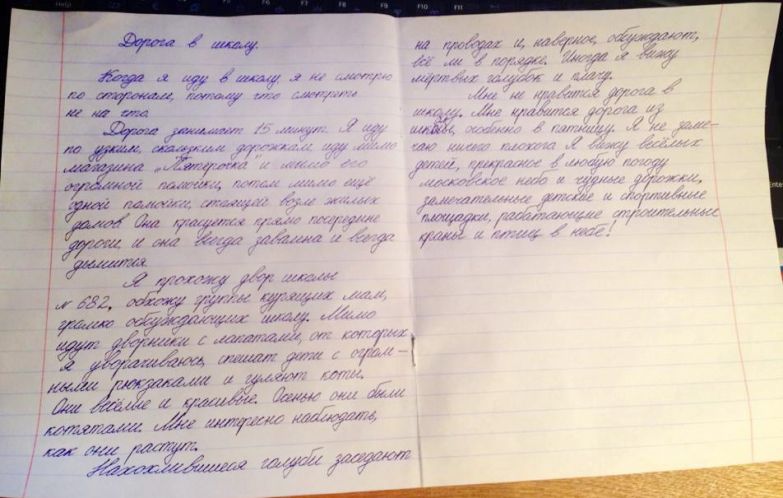 Дорога в школу.
Когда я иду в школу я не смотрю
по сторонам, потому что смотреть
не на что.
Дорога занимает 15 минут. Я иду
по узким, скользким дорожкам иду мимо
магазина „Пятерочка" и мимо его
огромной помойки, потом мимо ещё
одной помойки, стоящей возле жилых
домов. Она красуется прямо посередине
дороги и она всегда завалена и всегда
дымится
Я прохожу двор школы
№ 682, обхожу группы курящих мам,
громко обсуждающих школу. Мимо
идут дворники с лопатами, от которых
я уворачиваюсь, спешат дети с огром-
ными рюкзаками и гуляют коты.
Они весёлые и красивые. Осенью они были
котятами. Мне интересно наблюдать,
как они растут.
Нахохлившиеся голуби заседают
на проводах и, наверное, обсуждают,
всё ли в порядке. Иногда я вижу
мёртвых голубок и плачу.
Мне не нравится дорога в
школу. Мне нравится дорога из
школы, особенно в пятницу. Я не заме-
чаю ничего плохого Я вижу весёлых
детей, прекрасное в любую погоду
московское небо и чудные дорожки,
замечательные детские и спортивные
площадки, работающие строительные
краны и птиц в небе!
F6
F7
F8
F9
F10
F11
F12
Enter